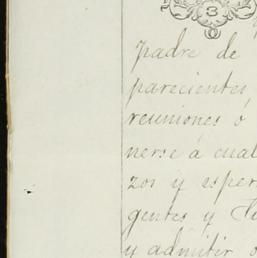 3
padre de
parecientes,
reuniones ó
nerse á cual
zos y esper
gentes y
y admitir o